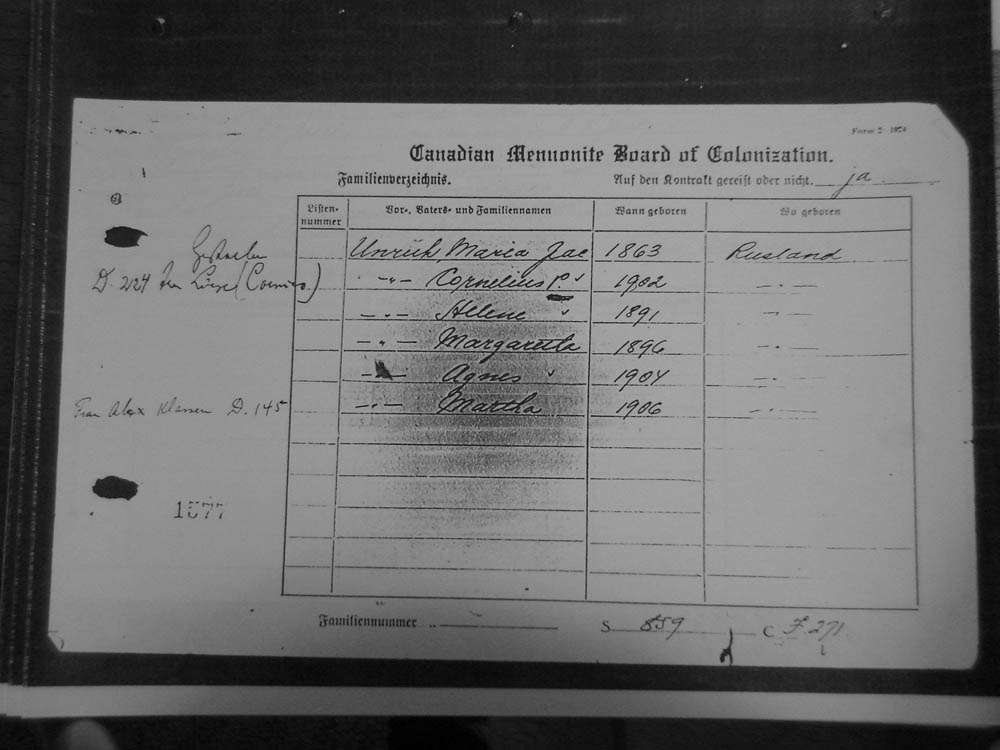 Form 2 1924
Canadian Mennonite Board of Colonization.
Familienverzeichnis. Auf den Kontrakt gereist oder nicht. ja
Listen-nummer Vor-, Vaters- und Familiennamen Wann geboren Wo geboren
Gestorben Unruh Maria Jac 1863 Rusland
D. 224 -"- Cornelius P. 1902 -"-
-"- Helene " 1891 -"-
-"- Margareta 1896 -"-
-"- Agnes " 1904 -"-
Frau Alex Klassen D. 145 -"- Martha 1906 -"-
1577
Familiennummer S 559 C F 271